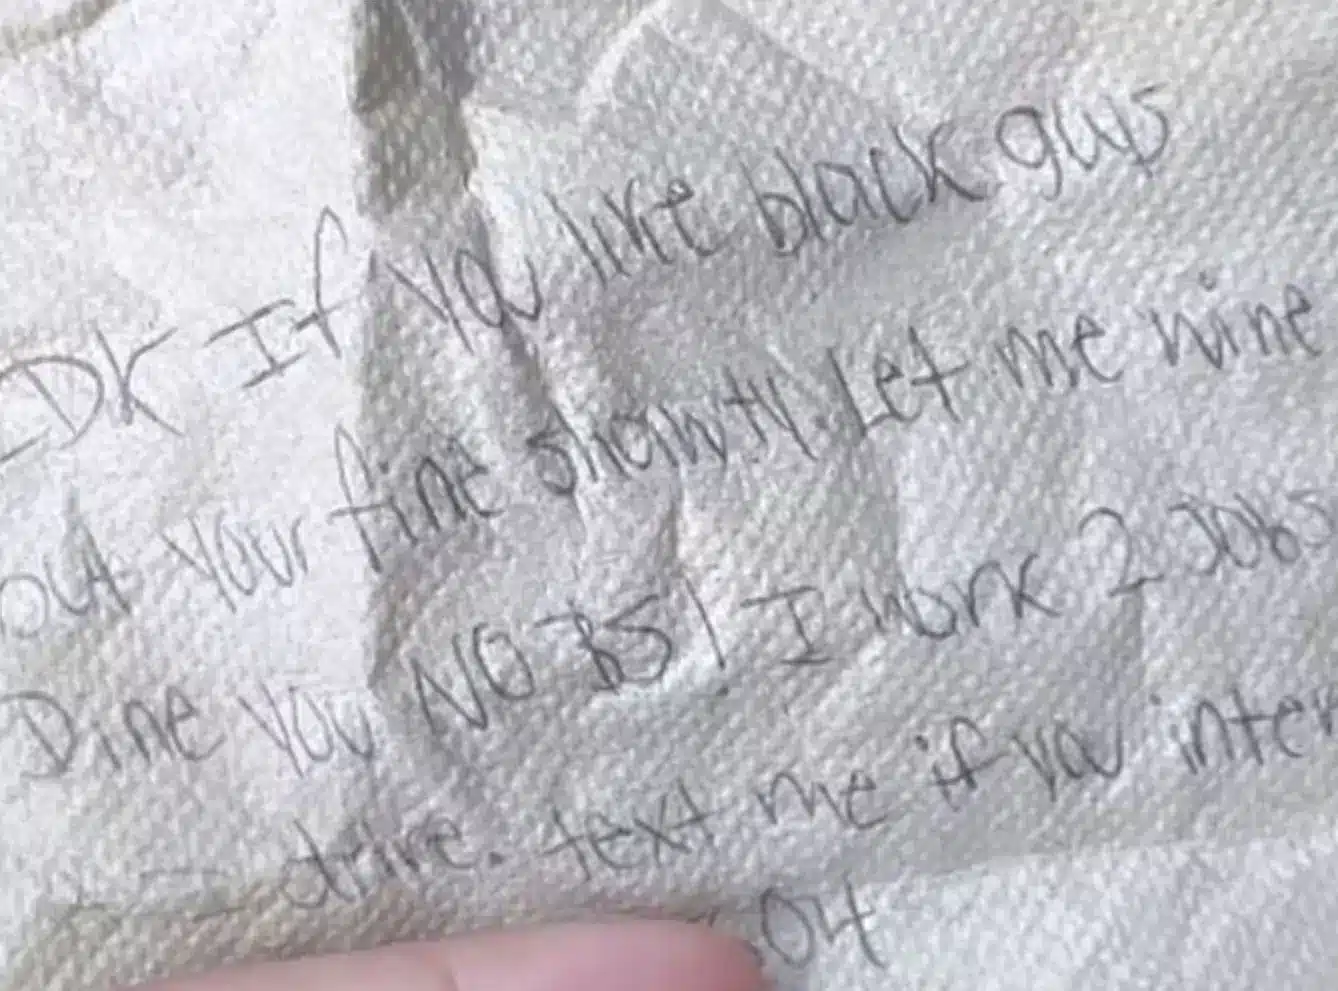 IDK If you like black guys
but your fine shawty. Let me wine
Dine you NO BS! I work 2 Jobs
drive. text me if you inter
04